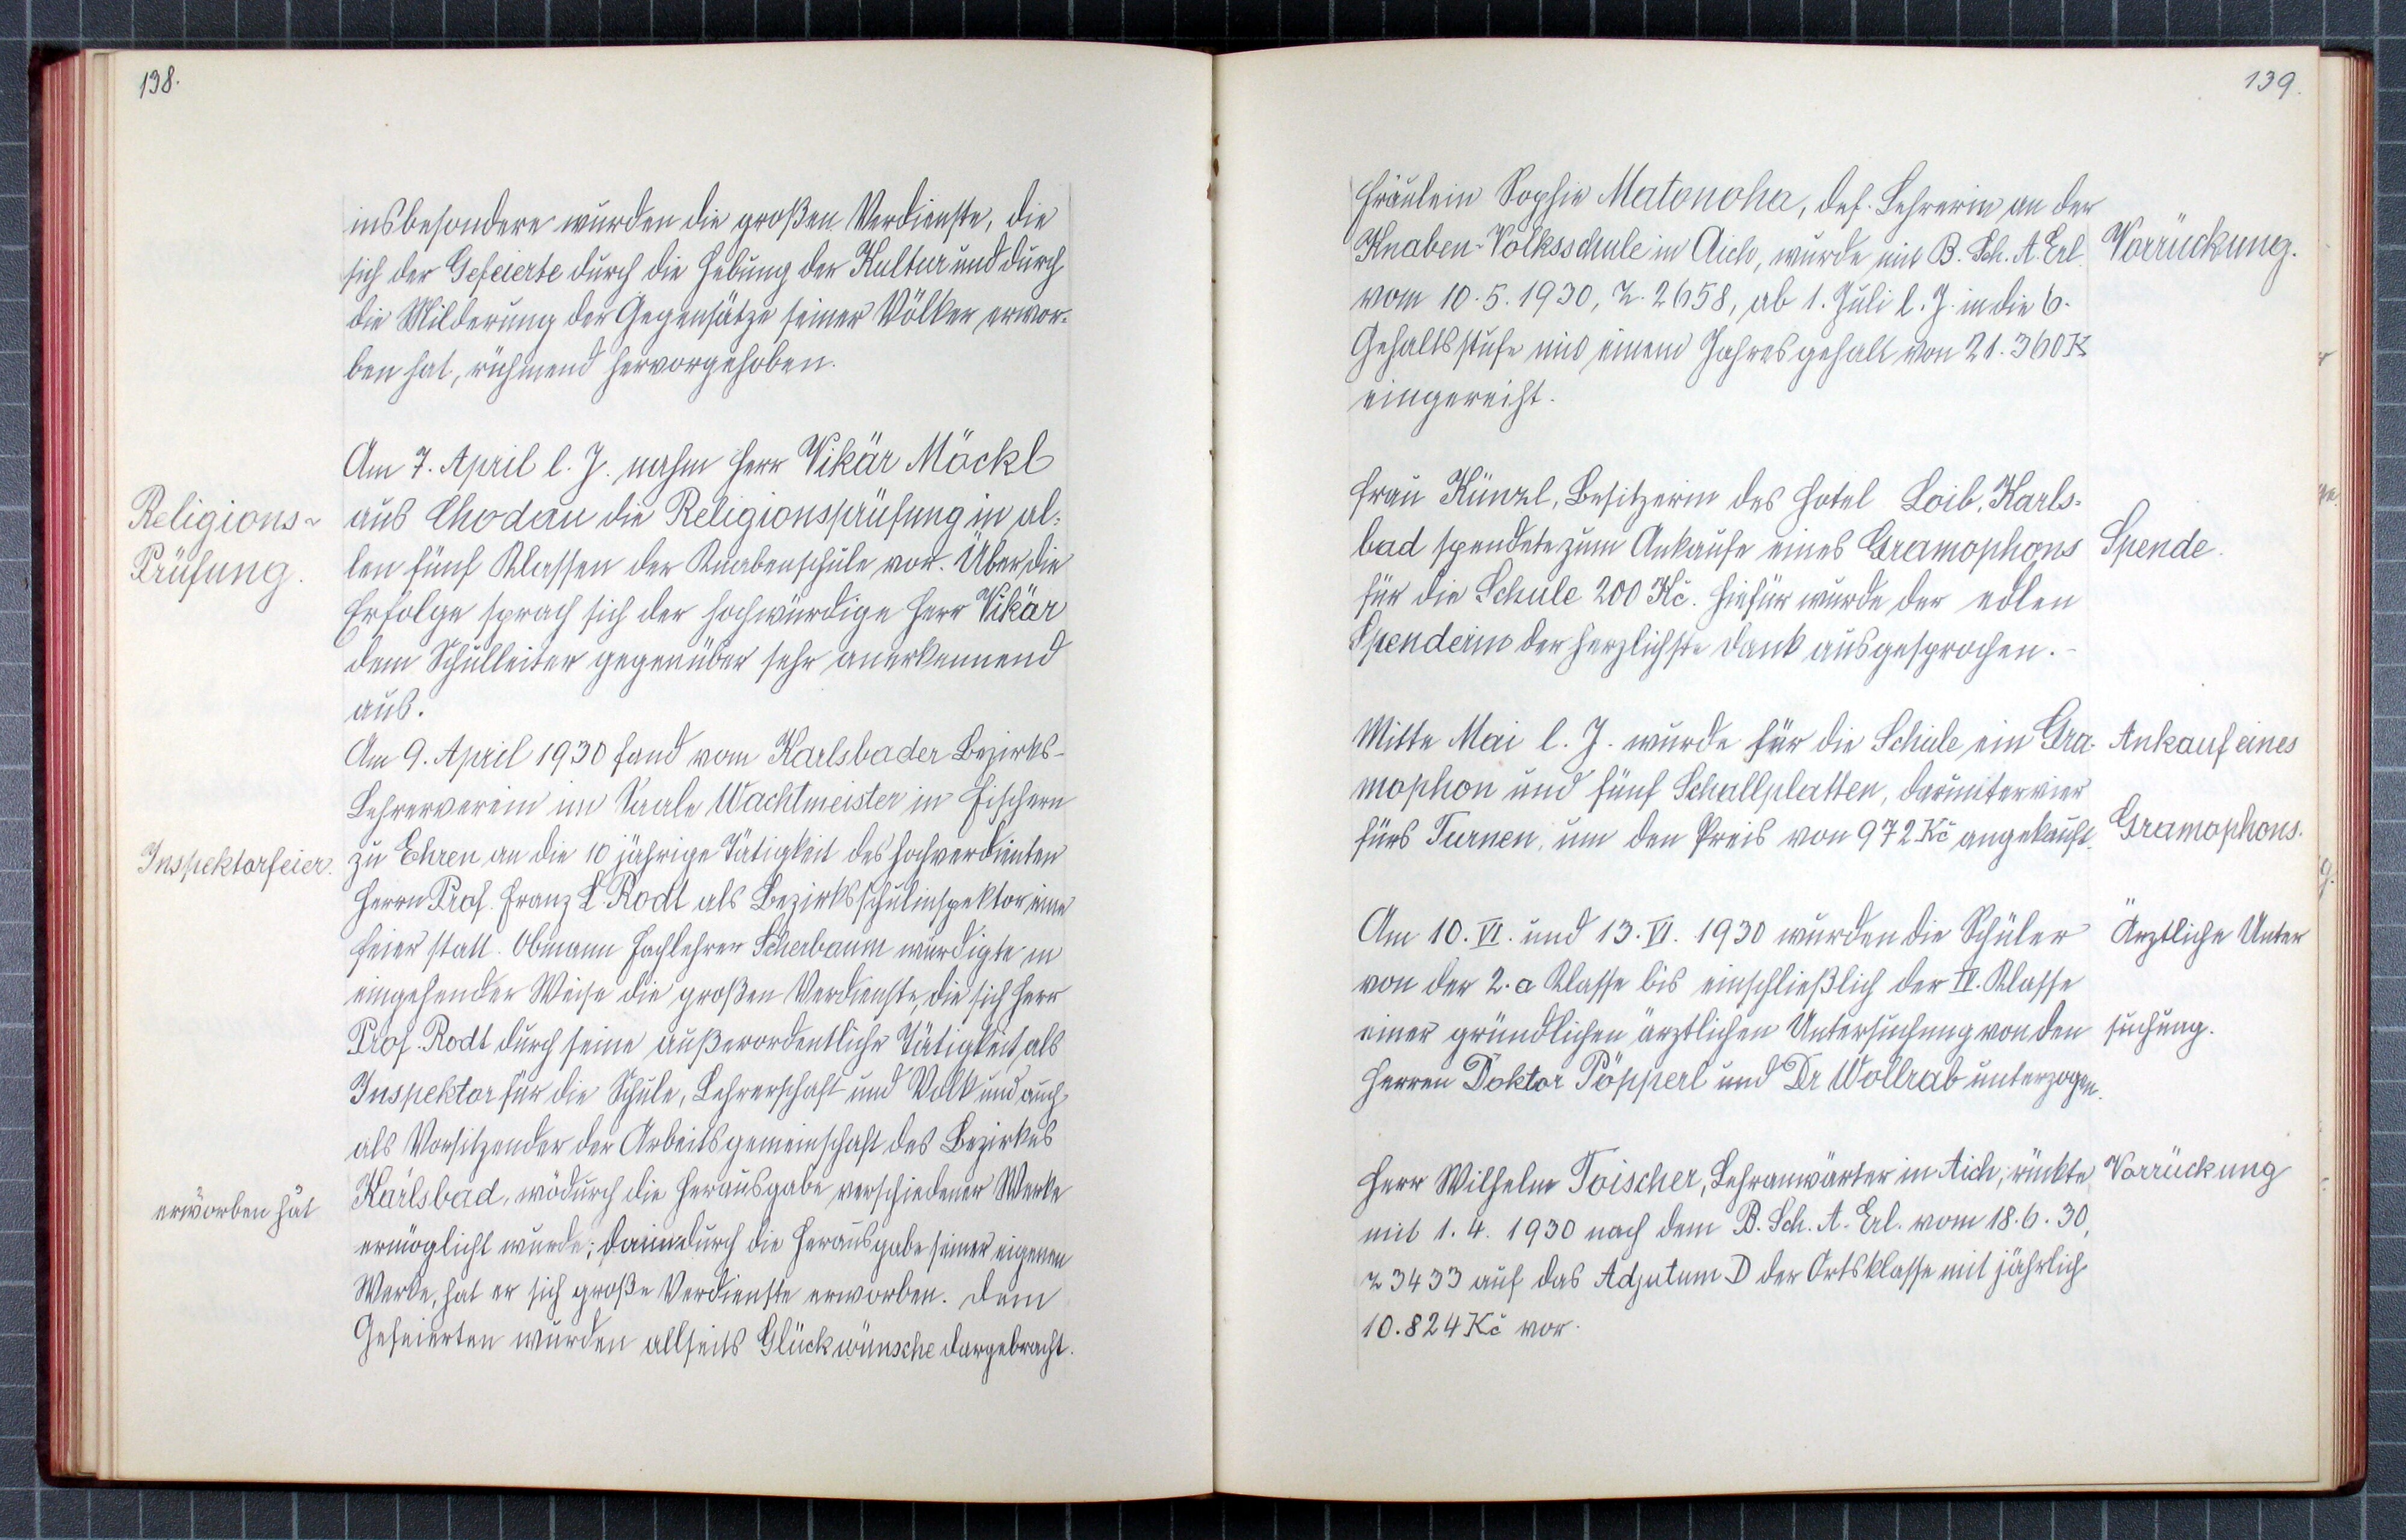 138.
insbesondere wurden die großen Verdienste, die
sich der Gefeierte durch die Hebung der Kultur und durch
die Milderung der Gegensätze seiner Völker erwor-
ben hat, rühmend hervorgehoben.
Am 7. April l. J. nahm Herr Vikär Möckl
Religions-
aus Chodau die Religionsprüfung in al-
Prüfung.
len fünf Klassen der Knabenschule vor. Über die
Erfolge sprach sich der hochwürdige Herr Vikär
dem Schulleiter gegenüber sehr anerkennend
aus.
Am 9. April 1930 fand vom Karlsbader Bezirks-
Lehrerverein im Saale Wachtmeister in Fischern
Inspektorfeier.
zu Ehren an die 10 jährige Tätigkeit des hochverdienten
Herrn Prof. Franz L. Rodt als Bezirksschulinspektor eine
Feier statt. Obmann Fachlehrer Scherbaum würdigte in
eingehender Weise die großen Verdienste, die sich Herr
Prof. Rodt durch seine außerordentliche Tätigkeit als
Inspektor für die Schule, Lehrerschaft und Volk und auch
als Vorsitzender der Arbeitsgemeinschaft des Bezirkes
erworben hat
Karlsbad, wodurch die Herausgabe verschiedener Werke
ermöglicht wurde; dann durch die Herausgabe seiner eigenen
Werke, hat er sich große Verdienste erworben. Dem
Gefeierten wurden allseits Glückwünsche dargebracht.
139.
Fräulein Sophie Matonoha, def. Lehrerin an der
Knaben-Volksschule in Aich, wurde mit B. Sch. A. Erl.
Vorrückung.
vom 10.5.1930, Z. 2658, ab 1. Juli l. J. in die 6.
Gehaltsstufe mit einem Jahresgehalt von 21.360 K
eingereiht.
Frau Künzl, Besitzerin des Hotel Loib, Karls-
bad spendete zum Ankaufe eines Gramophons
Spende.
für die Schule 200 Kč. Hiefür wurde der edlen
Spenderin der herzlichste Dank ausgesprochen. -
Mitte Mai l. J. wurde für die Schule ein Gra-
Ankauf eines
mophon und fünf Schallplatten, darunter vier
fürs Turnen, um den Preis von 972 Kč angekauft.
Gramophons.
Am 10. VI. und 13. VI. 1930 wurden die Schüler
Ärztliche Unter
von der 2. a Klasse bis einschließlich der IV. Klasse
einer gründlichen ärztlichen Untersuchung von den
suchung.
Herren Doktor Pöpperl und Dr Wollrab unterzogen.
Herr Wilhelm Toischer, Lehranwärter in Aich, rückte
Vorrückung
mit 1.4. 1930 nach dem B. Sch. A. Erl. vom 18.6.30,
Z 3433 auf das Adjutum D der Ortsklasse mit jährlich
10.824 Kč vor.